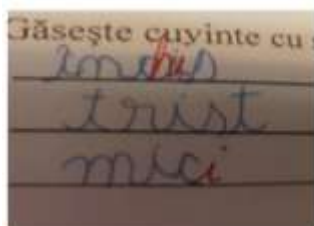 Găsește cuvinte cu
închis
trist
mici